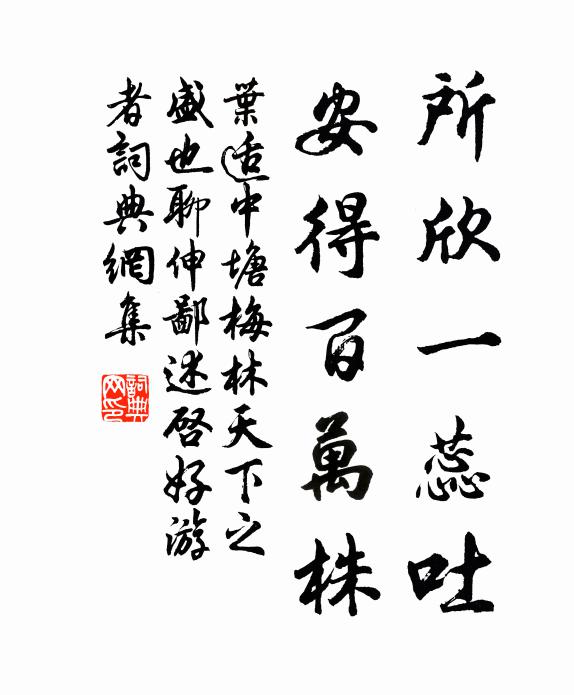 所欣一蕊吐
安得百萬株
葉适中塘梅林天下之
盛也聊伸鄙述啓好游
者詞典網集
詞典
网印